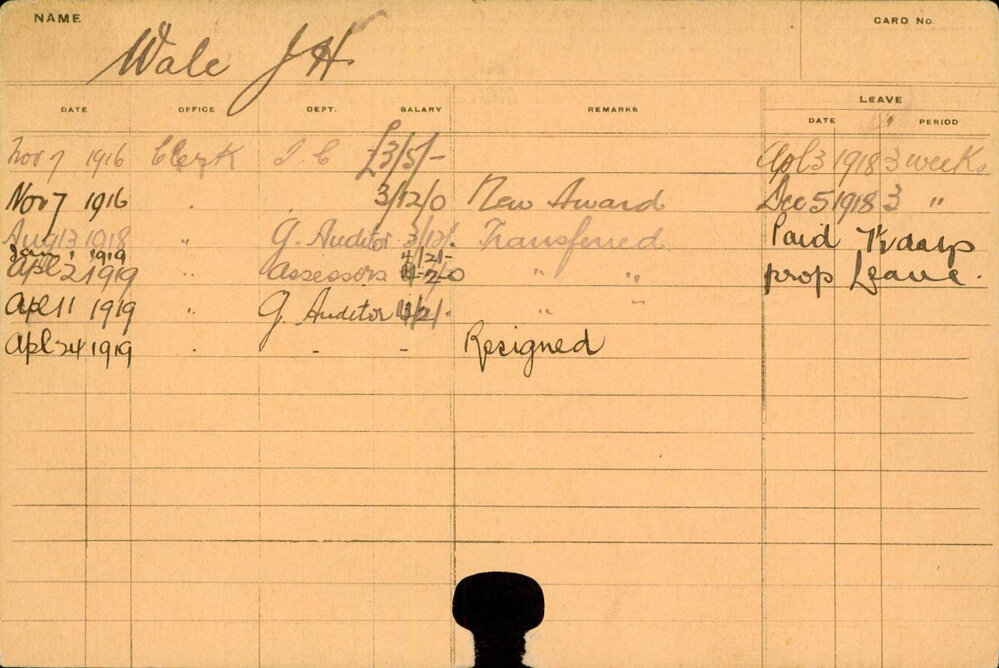 NAME CARD No.
Wale J H
DATE OFFICE DEPT. SALARY REMARKS LEAVE
DATE PERIOD
Nov 7 1916 Clerk T. C £3/5/- Apl 3 1918 3 weeks
Nov 7 1916 " . 3/12/0 New Award Dec 5 1918 3 "
Aug 13 1918 " G. Auditor 3/12/. Transferred Paid 7½ days
Jan 1 1919 4/2/-
Apl 2 1919 " Assessors 4-2-0 " " prop Leave.
Apl 11 1919 " G. Auditor 4/2/. " "
Apl 24 1919 . - - Resigned